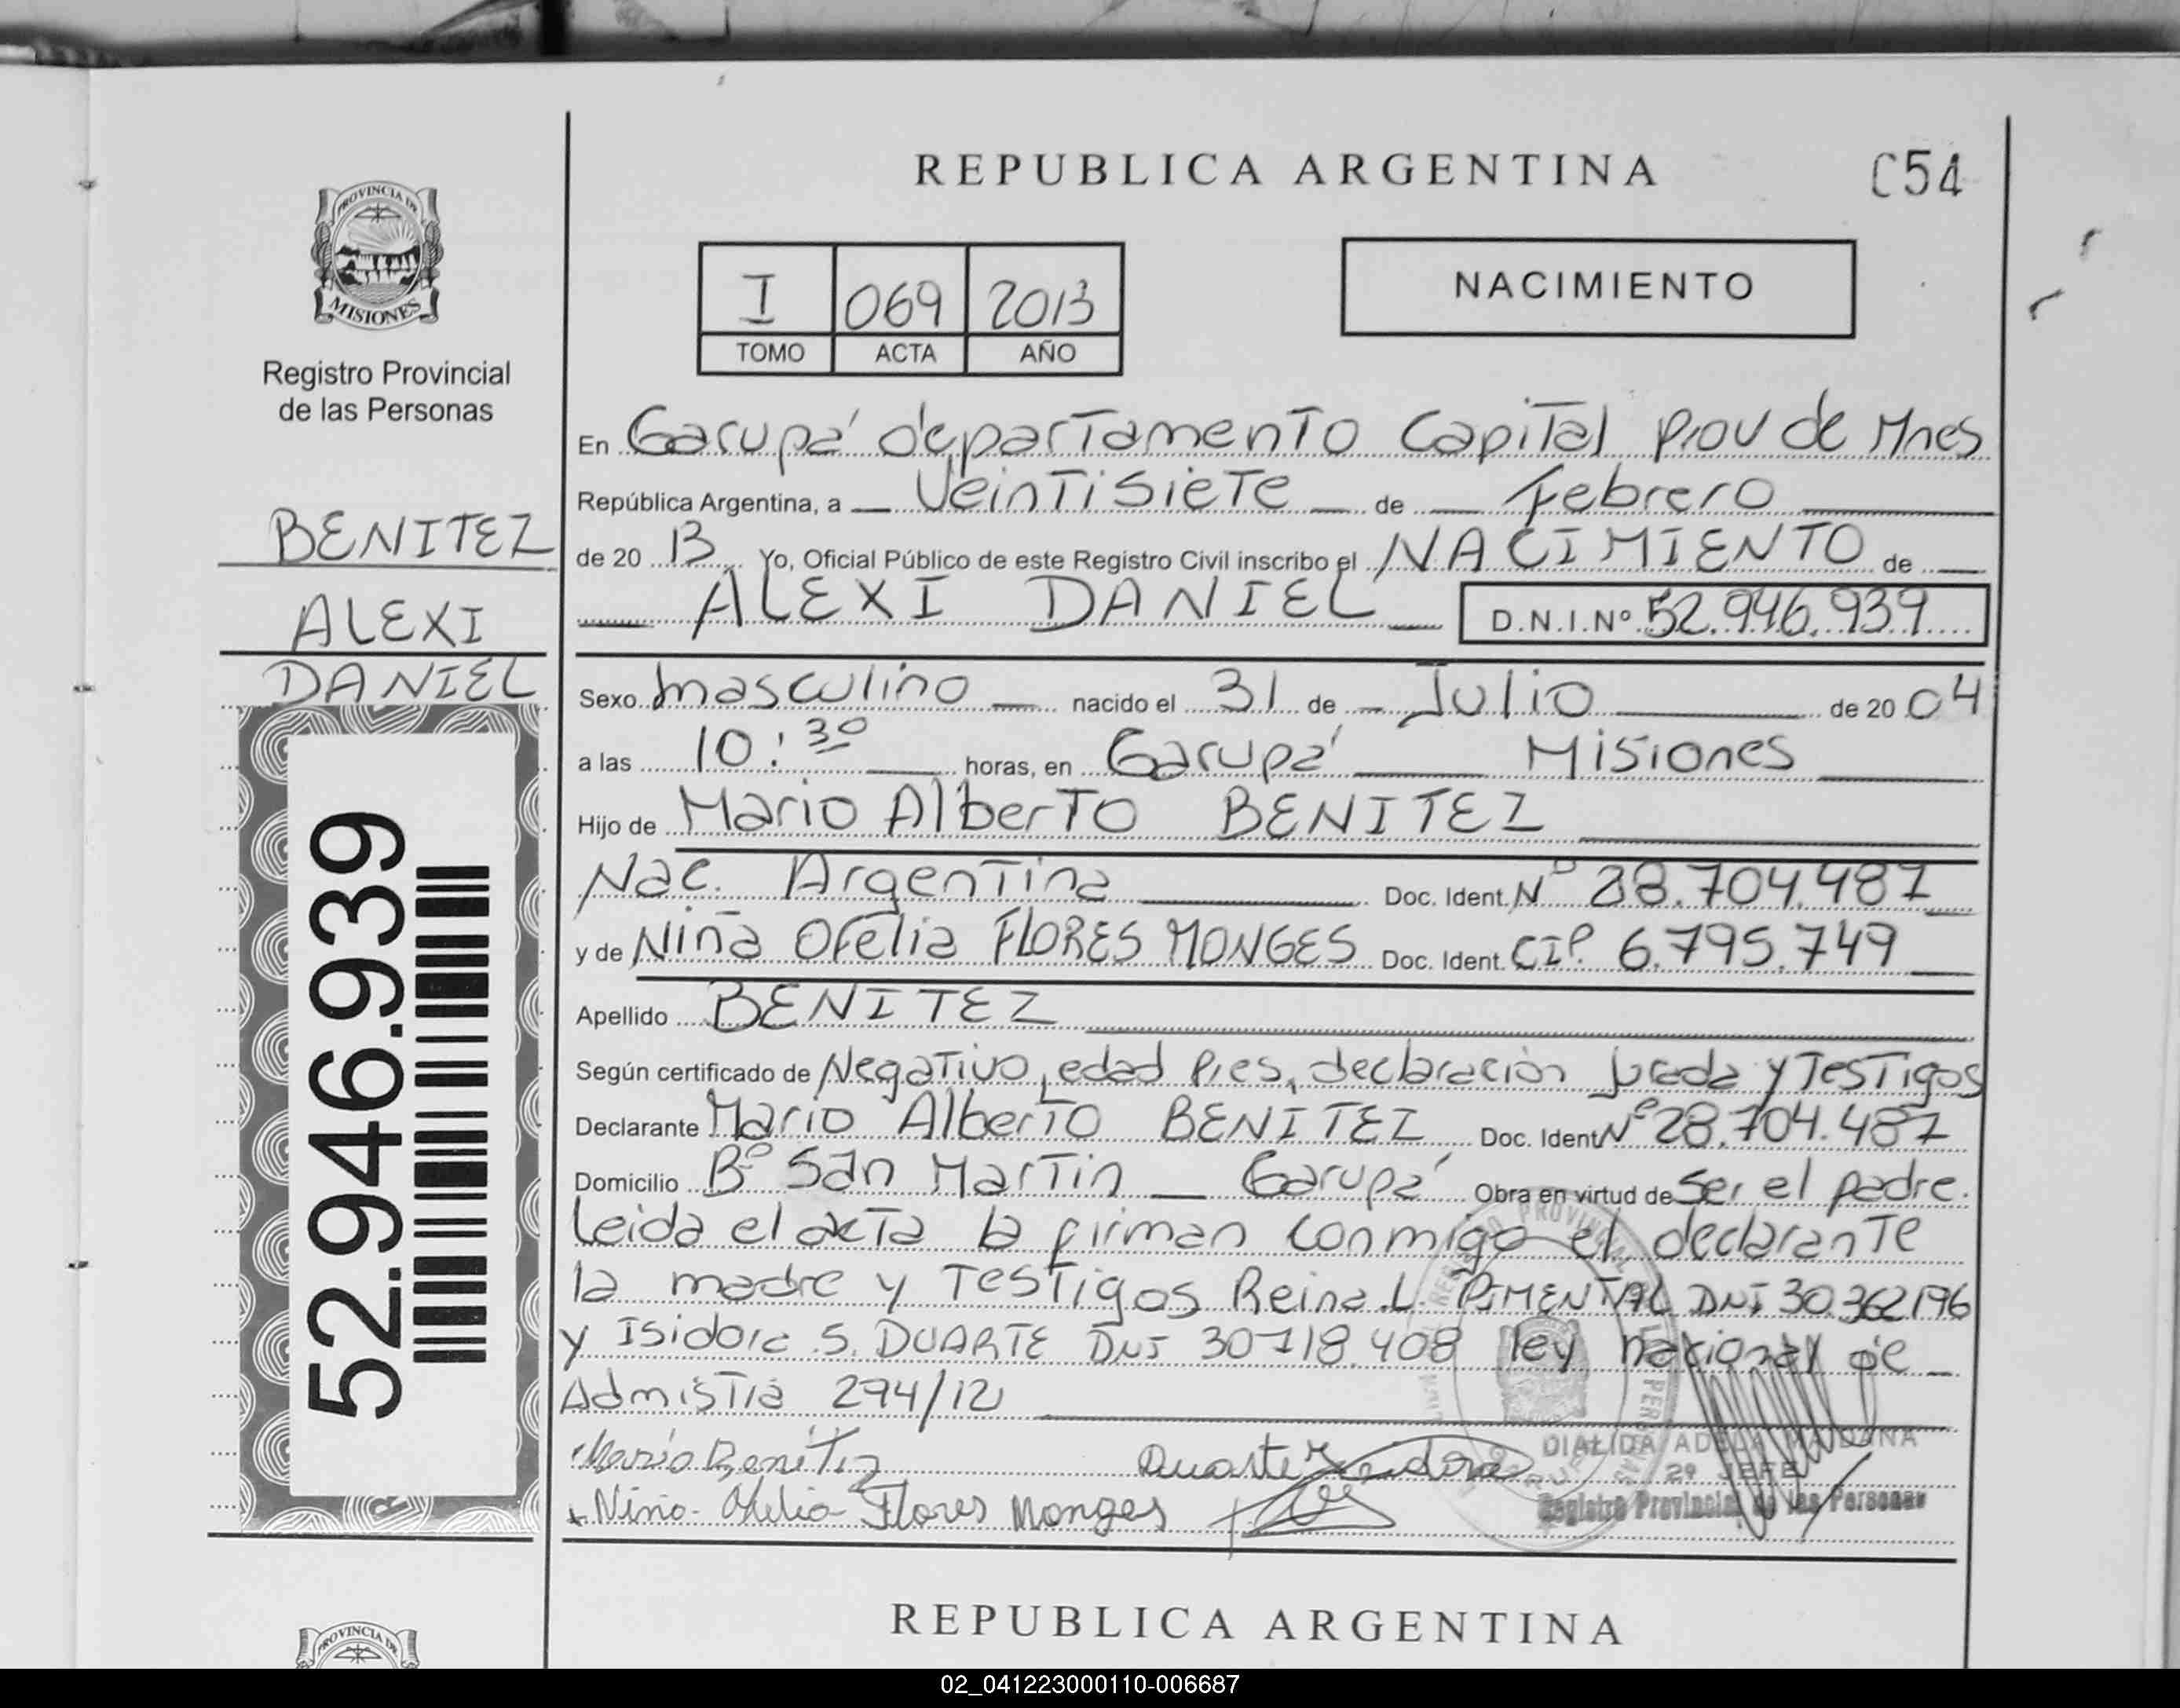 REPUBLICA ARGENTINA
C54
PROVINCIA DE
MISIONES
Registro Provincial
de las Personas
I 069 2013
TOMO ACTA AÑO
NACIMIENTO
BENITEZ
ALEXI
DANIEL
52.946.939
En Garupá departamento Capital Prov de Mnes
República Argentina, a Veintisiete de Febrero
de 20 13 Yo, Oficial Público de este Registro Civil inscribo el NACIMIENTO de
ALEXI DANIEL D.N.I.Nº 52.946.939
Sexo masculino nacido el 31 de Julio de 20 04
a las 10:30 horas, en Garupá Misiones
Hijo de Mario Alberto BENITEZ
Nac. Argentina Doc. Ident. Nº 28.704.487
y de Niña Ofelia FLORES MONGES Doc. Ident. CIP. 6.795.749
Apellido BENITEZ
Según certificado de Negativo, edad Pres, declaración jurada y Testigos
Declarante Mario Alberto BENITEZ Doc. Ident Nº 28.704.487
Domicilio Bº San Martin Garupá Obra en virtud de Ser el padre.
Leida el acta la firman conmigo el declarante
la madre y Testigos Reina L. PIMENTAL DNI 30.362.196
y Isidora S. DUARTE DNI 30718.408 ley nacional de
Admistia 294/12
Mario Benitez Duarte Isidora
DIALIDA ADELA MAIDANA
2º JEFE
Registro Provincial de las Personas
Nina Ofelia Flores Monges
REPUBLICA ARGENTINA
PROVINCIA DE
02_041223000110-006687